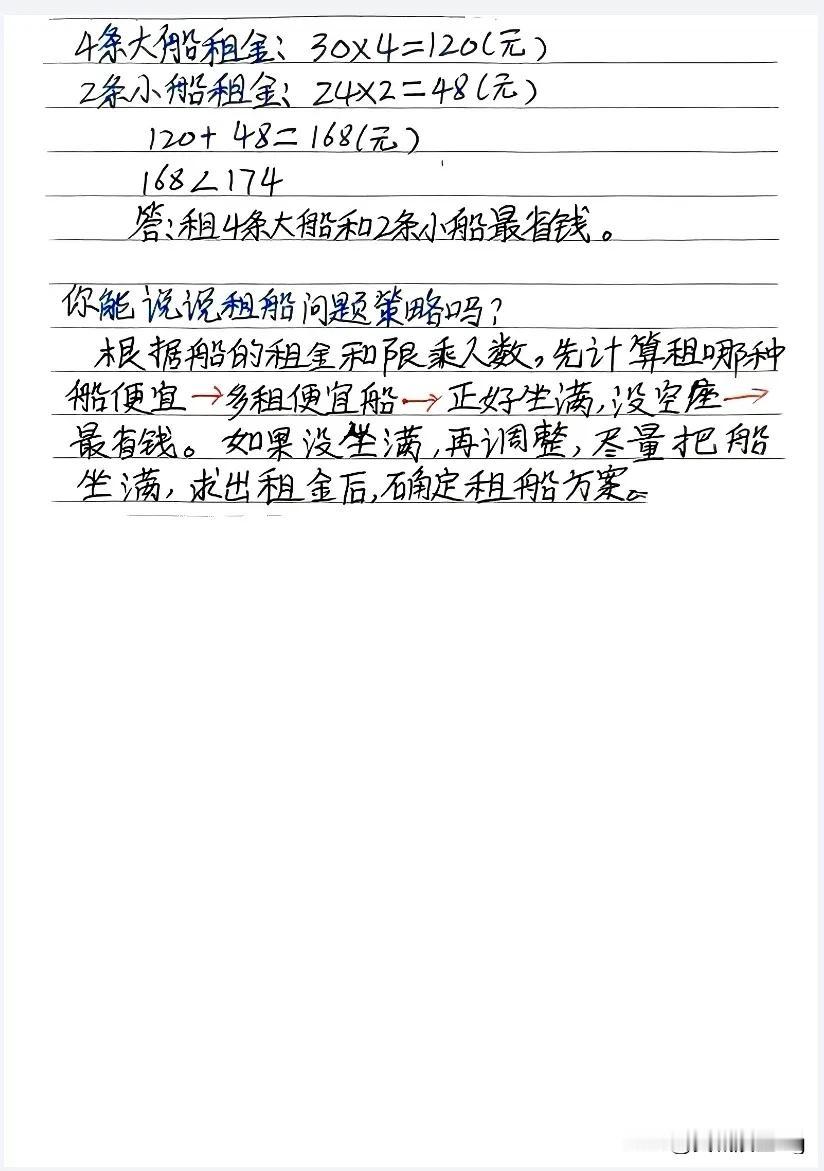 4条大船租金：30×4=120(元)
2条小船租金：24×2=48(元)
120+48=168(元)
168<174
答：租4条大船和2条小船最省钱。
你能说说租船问题策略吗？
根据船的租金和限乘人数，先计算租哪种
船便宜→多租便宜船→正好坐满，没空座→
最省钱。如果没坐满，再调整，尽量把船
坐满，求出租金后，确定租船方案。